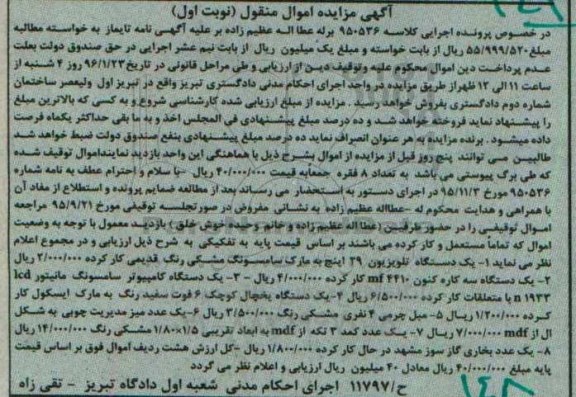 آگهی مزایده اموال منقول (نوبت اول)
در خصوص پرونده اجرایی کلاسه ۹۵۰۵۳۶ برله عطا اله عظیم زاده بر علیه آگهی نامه تایماز به خواسته مطالبه
مبلغ ۵۵/۹۹۹/۵۲۰ ریال از بابت خواسته و مبلغ یک میلیون ریال از بابت نیم عشر اجرایی در حق صندوق دولت بعلت
عدم پرداخت دین اموال محکوم علیه وتوقیف دین از ارزیابی و طی مراحل قانونی در تاریخ ۹۶/۱/۲۳ روز ۴ شنبه از
ساعت ۱۱ الی ۱۲ ظهر از طریق مزایده در واحد اجرای احکام مدنی دادگستری تبریز واقع در تبریز اول ولیعصر ساختمان
شماره دوم دادگستری بفروش خواهد رسید . مزایده از مبلغ ارزیابی شده کارشناسی شروع و به کسی که بالاترین مبلغ
را پیشنهاد نماید فروخته خواهد شد و ده درصد مبلغ پیشنهادی فی المجلس اخذ و به ما بقی حداکثر یکماه فرصت
داده میشود . برنده مزایده به هر عنوان انصراف نماید ده درصد مبلغ پیشنهادی بنفع صندوق دولت ضبط خواهد شد
طالبین می توانند پنج روز قبل از مزایده از اموال بشرح ذیل با هماهنگی این واحد بازدید نمایند اموال توقیف شده
که طی برگ پیوستی می باشد به تعداد ۸ فقره جمعا به قیمت ۴۰/۰۰۰/۰۰۰ ریال -با سلام و احترام عطف به نامه شماره
۹۵۰۵۳۶ مورخ ۹۵/۱۱/۳ در اجرای دستور به استحضار می رساند بعد از مطالعه ضمایم پرونده و استطلاع از مفاد آن
با همراهی و هدایت محکوم له -عطااله عظیم زاده به نشانی مفروض در صورتجلسه توقیفی مورخ ۹۵/۹/۲۱ مراجعه
اموال توقیفی را در حضور طرفین (عطا اله عظیم زاده و خانم وحیده خوش خلق) بازدید معمول با توجه به وضعیت
اموال که تماما مستعمل و کار کرده می باشند بر اساس قیمت پایه به تفکیکی به شرح ذیل ارزیابی و در مجموع اعلام
نظر می نماید ۱- یک دستگاه تلویزیون ۳۹ اینچ به مارک سامسونگ مشکی رنگ قدیمی کار کرده ۲/۰۰۰/۰۰۰ ریال
۲- یک دستگاه سه کاره کنون mf ۴۴۱۰ کار کرده ۴/۰۰۰/۰۰۰ ریال -۳- یک دستگاه کامپیوتر سامسونگ مانیتور lcd
n ۱۹۳۳ با متعلقات کار کرده ۶/۵۰۰/۰۰۰ ریال ۴-یک دستگاه یخچال کوچک ۶ فوت سفید رنگ به مارک ایسکول کار
کرده ۱/۲۰۰/۰۰۰ ریال ۵- مبل چرمی ۴ نفری مشکی رنگ ۳/۵۰۰/۰۰۰ ریال ۶-یک عدد میز مدیریت چوبی به شکل
ال از mdf ۷/۰۰۰/۰۰۰ ریال ۷- یک عدد کمد ۳ تکه از mdf به ابعاد تقریبی ۱/۵×۱/۸۰ مشکی رنگ ۱۴/۰۰۰/۰۰۰ ریال
۸- یک عدد بخاری گاز سوز مشهد در حال کار کرده ۱/۸۰۰/۰۰۰ ریال -کل ارزش هشت ردیف اموال فوق بر اساس قیمت
پایه مبلغ ۴۰/۰۰۰/۰۰۰ ریال معادل ۴۰ میلیون ریال ارزیابی و اعلام نظر می گردد
ح/۱۱۷۹۷ اجرای احکام مدنی شعبه اول دادگاه تبریز - تقی زاه